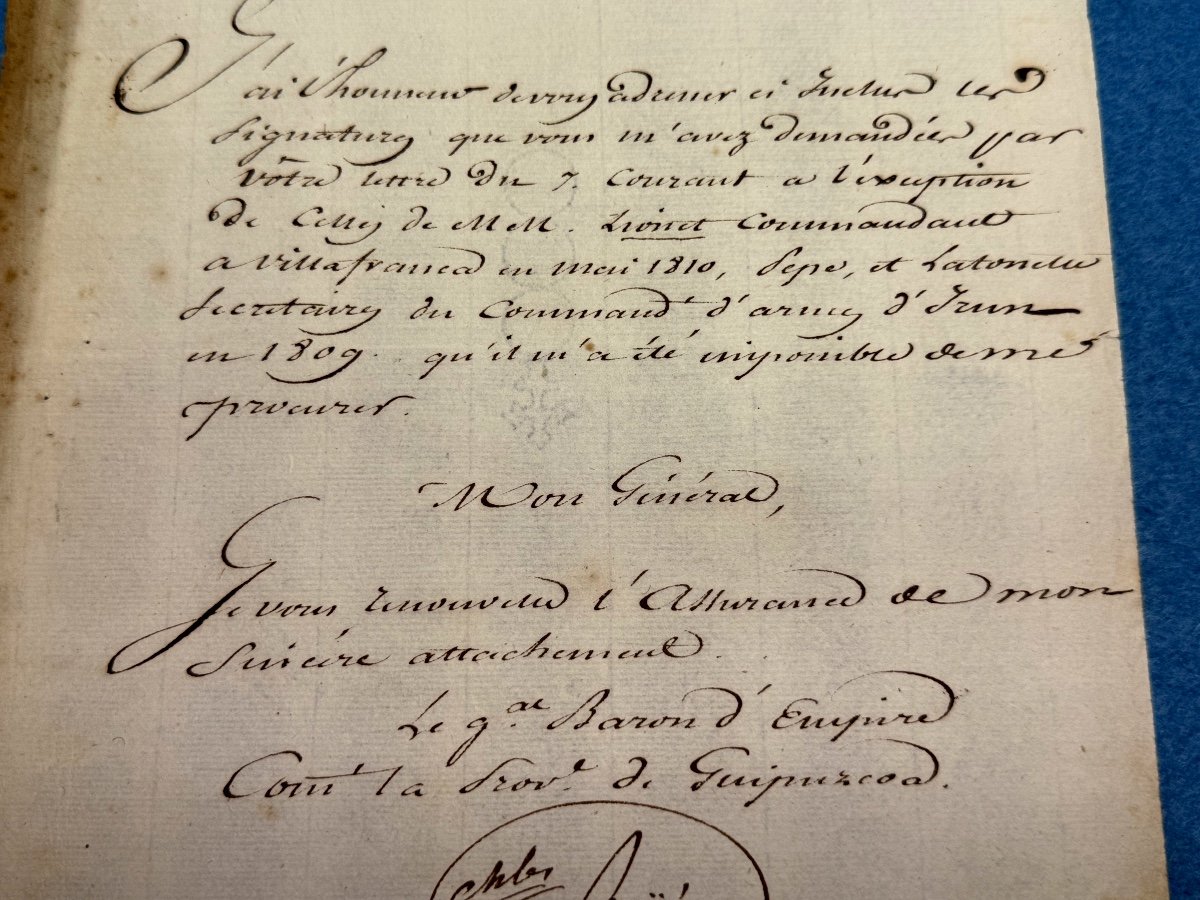 J'ai l'honneur de vous adresser ci Inclus les
Signatures que vous m'avez demandées par
vôtre lettre du 7. Courant a l'éxception
de Celles de MM. Lionet Commandant
a Villafranca en mai 1810, Pepe, et Latourette
Secretaires du Command.t d'armes d'Irun
en 1809. qu'il m'a été impossible de me
procurer.
Mon Général,
Je vous renouvelle l'Assurance de mon
Sincère attachement.
Le g.al Baron d'Empire
Com.t la Prov.e de Guipuzcoa.